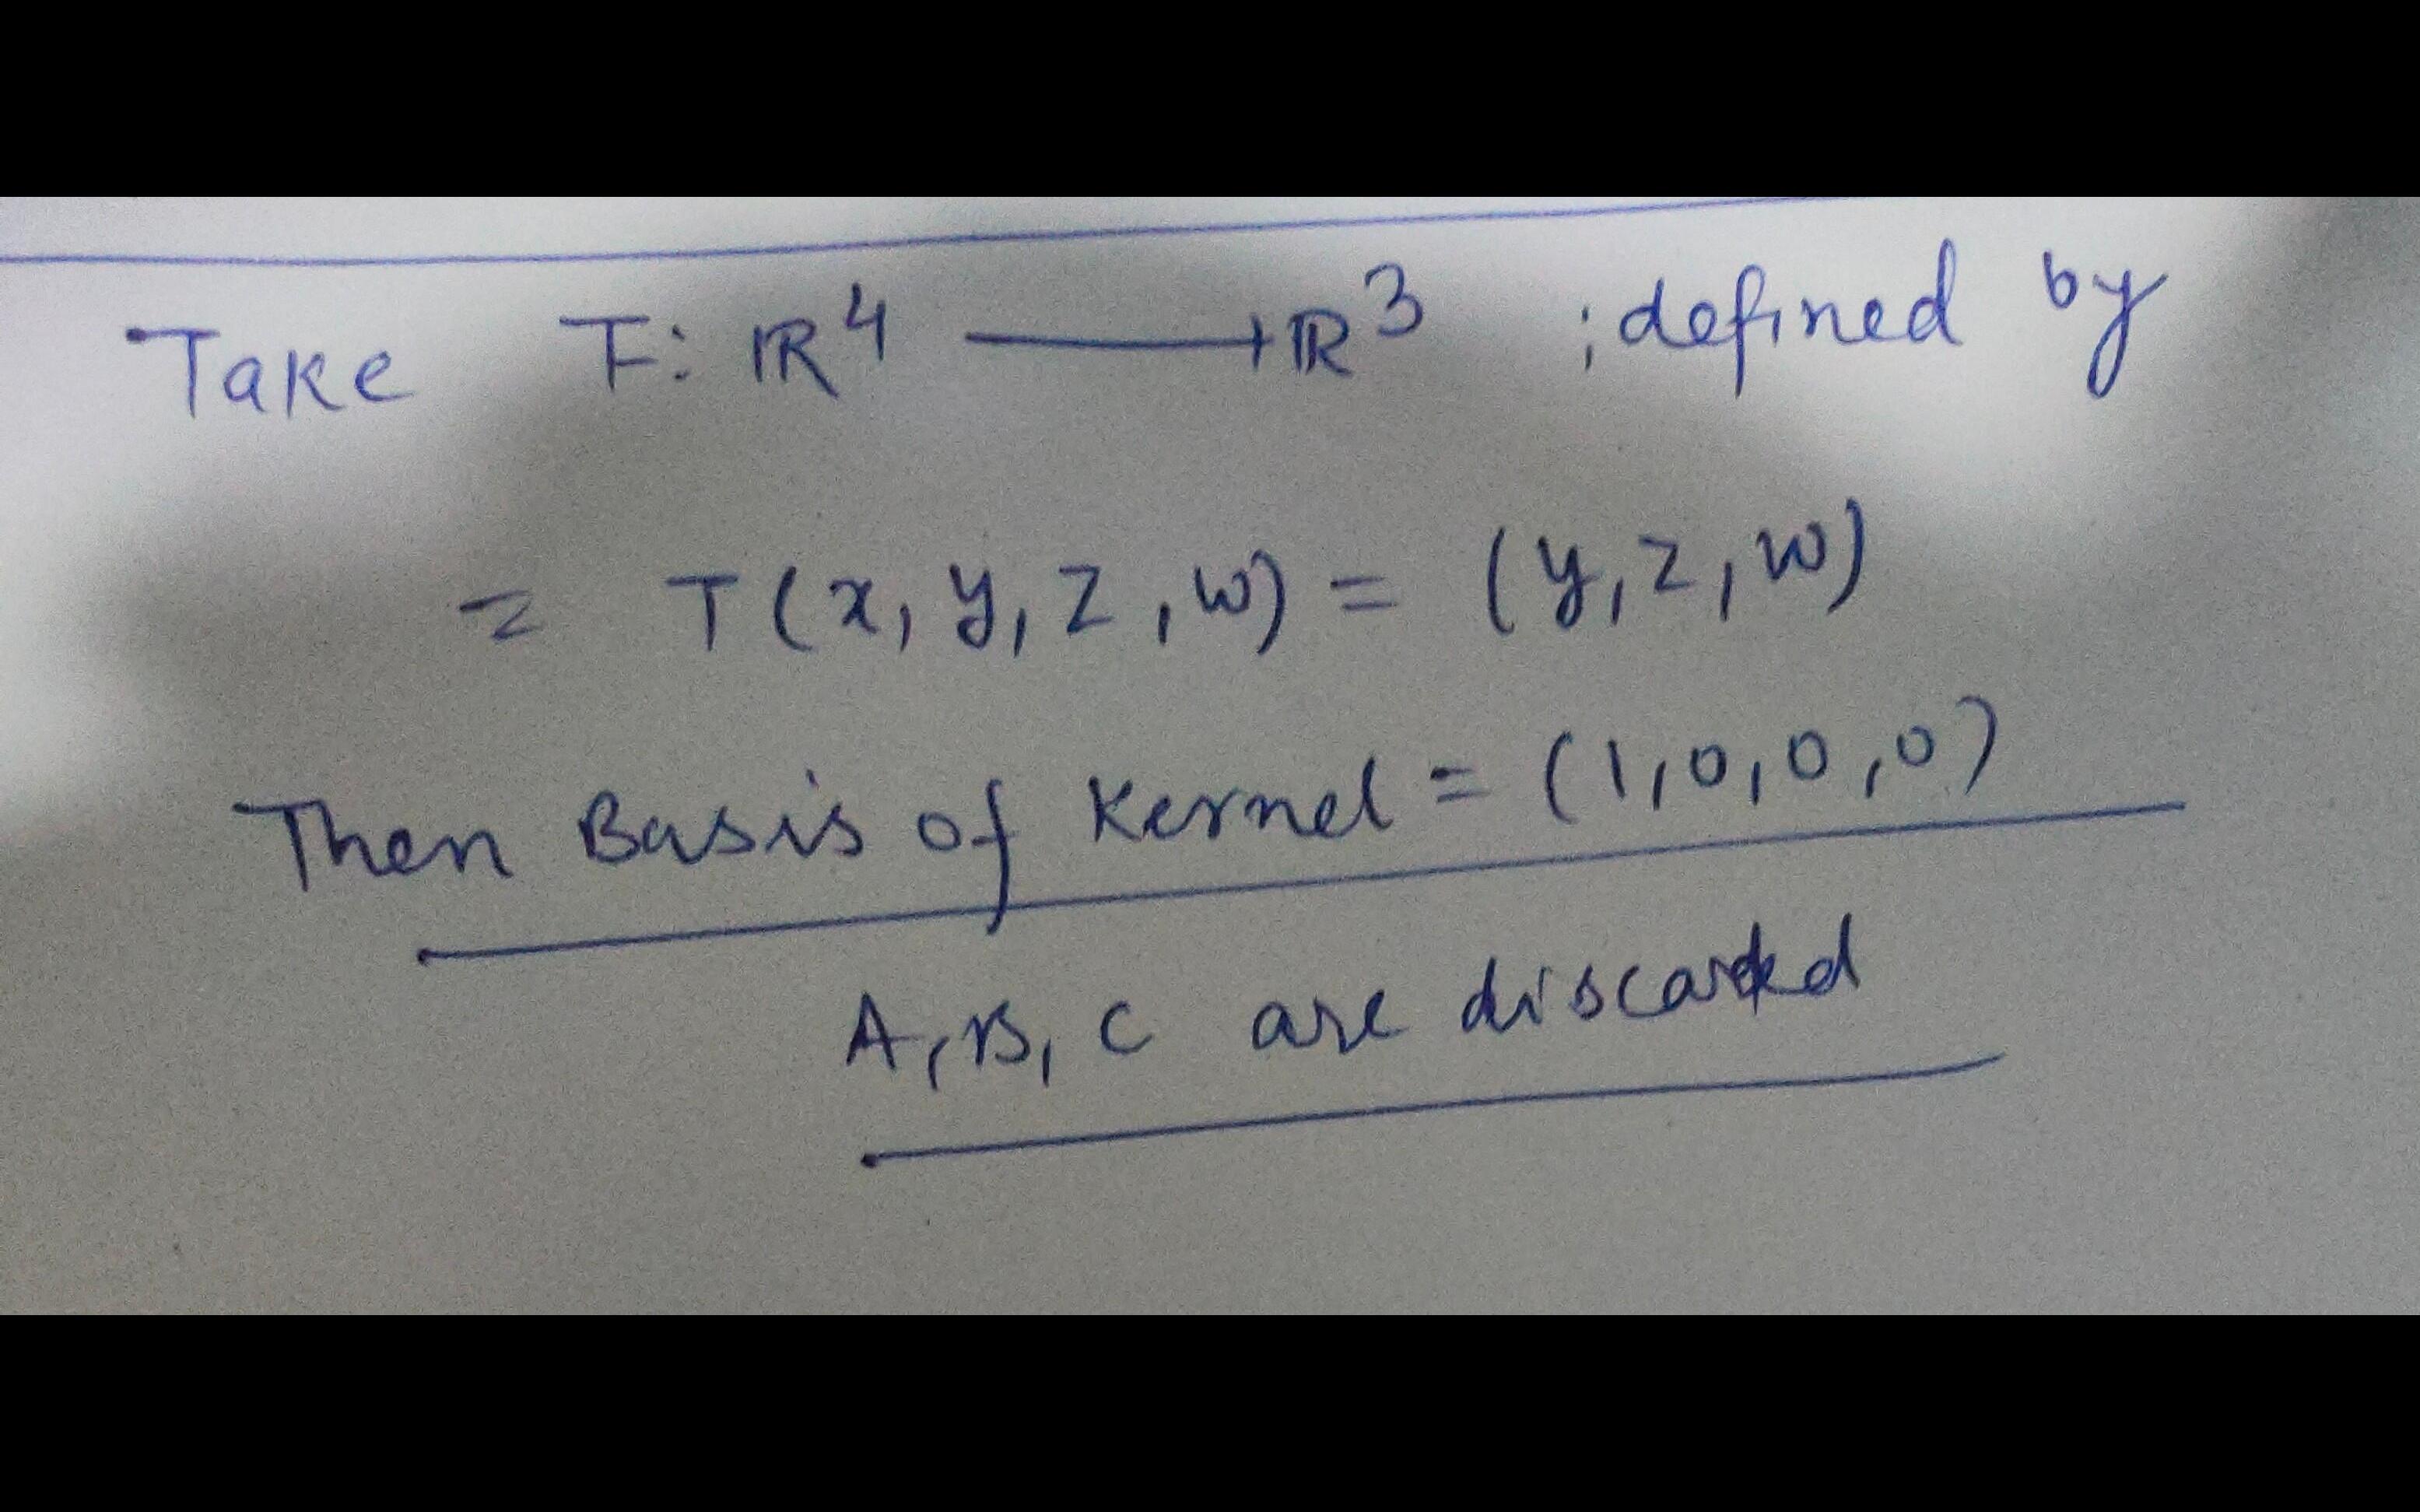 Take T: ℝ⁴ ⟶ ℝ³ ; defined by
= T(x, y, z, w) = (y, z, w)
Then Basis of Kernel = (1,0,0,0)
A, B, C are discarded